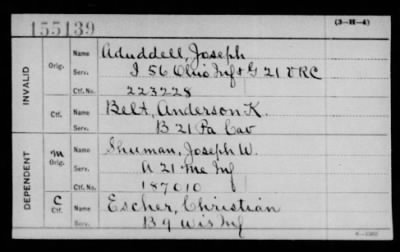 155139
(3-H-4)
INVALID
Orig.
Name Aduddell, Joseph
Serv. I 56 Ohio Inf & G 21 VRC
Ctf. No. 223228
Ctf.
Name Belt, Anderson K.
Serv. B 21 Pa Cav
DEPENDENT
m
Orig.
Name Shuman, Joseph W.
Serv. A 21 Me Inf
Ctf. No. 187010
C
Ctf.
Name Escher, Christian
Serv. B 9 Wis Inf